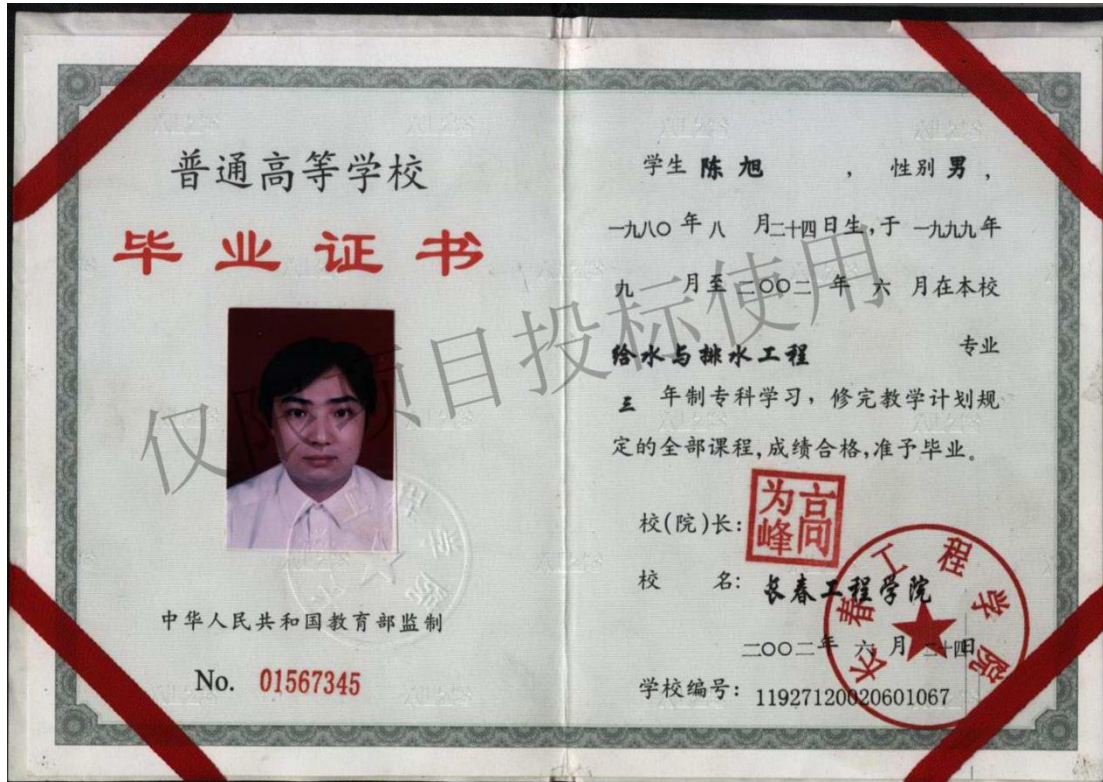 普通高等学校
毕业证书
中华人民共和国教育部监制
No. 01567345
学生 陈旭 ， 性别 男 ，
一九八〇 年 八 月二十四日生，于 一九九九年
九 月至 二〇〇二 年 六 月在本校
给水与排水工程 专业
三 年制专科学习，修完教学计划规
定的全部课程，成绩合格，准予毕业。
校(院)长：
高为峰
校 名：长春工程学院
二〇〇二年 六 月 二十四日
学校编号：11927120020601067
长春工程学院
仅限项目投标使用